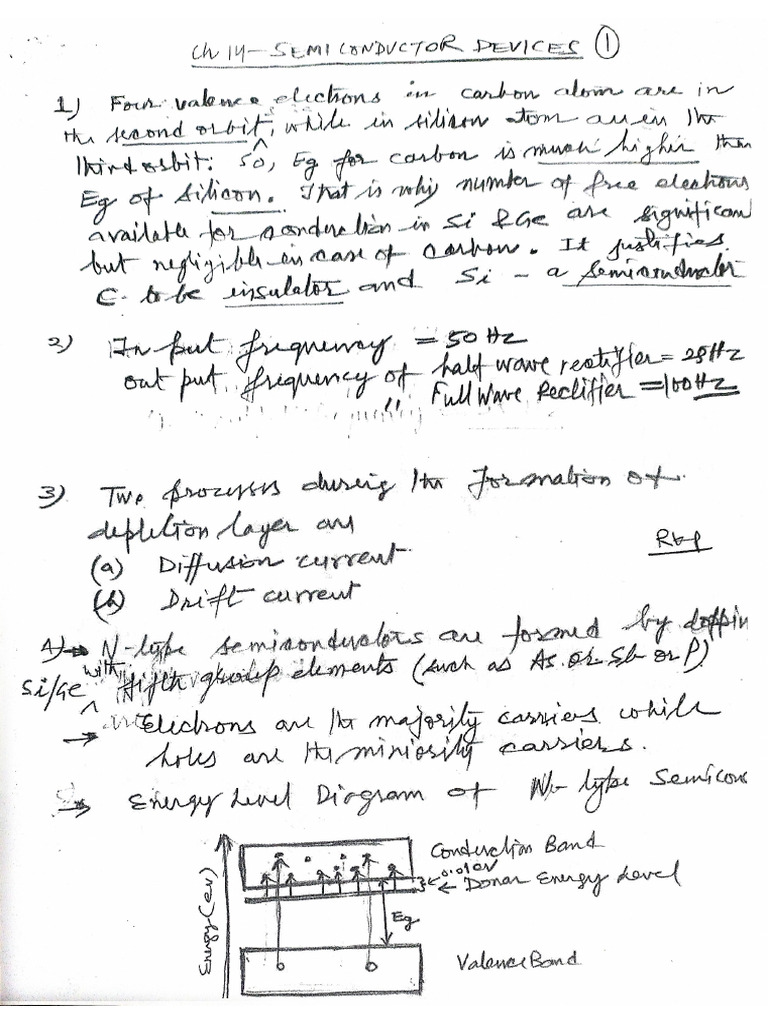 Ch 14 - SEMICONDUCTOR DEVICES 1
1) Four valence electrons in carbon atom are in
the second orbit, while in silicon atom are in the
third orbit. So, Eg for carbon is much higher than
Eg of silicon. That is why number of free electrons
available for conduction in Si & Ge are significan
but negligible in case of carbon. It justifies
C to be insulator and Si - a semiconductor
2) In put frequency = 50 Hz
out put frequency of half wave rectifier = 25Hz
" Full Wave Rectifier = 100Hz
3) Two processes during the formation of
depletion layer are
(a) Diffusion current
(b) Drift current
4) → N-type semiconductors are formed by doppin
Si/Ge with fifth group elements (such as As or Sb or P)
→ Electrons are the majority carriers while
holes are the miniority carriers.
→ Energy Level Diagram of N-type Semicon
Conduction Band
0.01eV
← Donar Energy Level
Energy (eV)
Eg
Valence Band